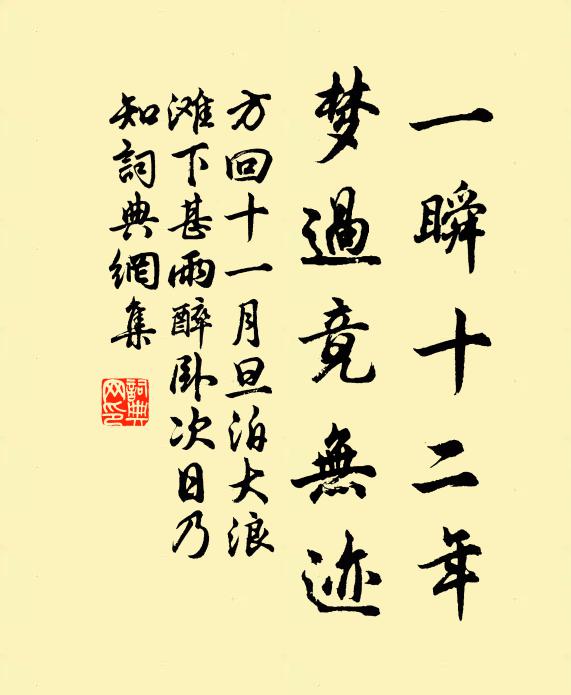 一瞬十二年
梦過竟無迹
方回十一月旦泊大浪
滩下甚雨醉卧次日乃
知詞典網集
詞典
网印